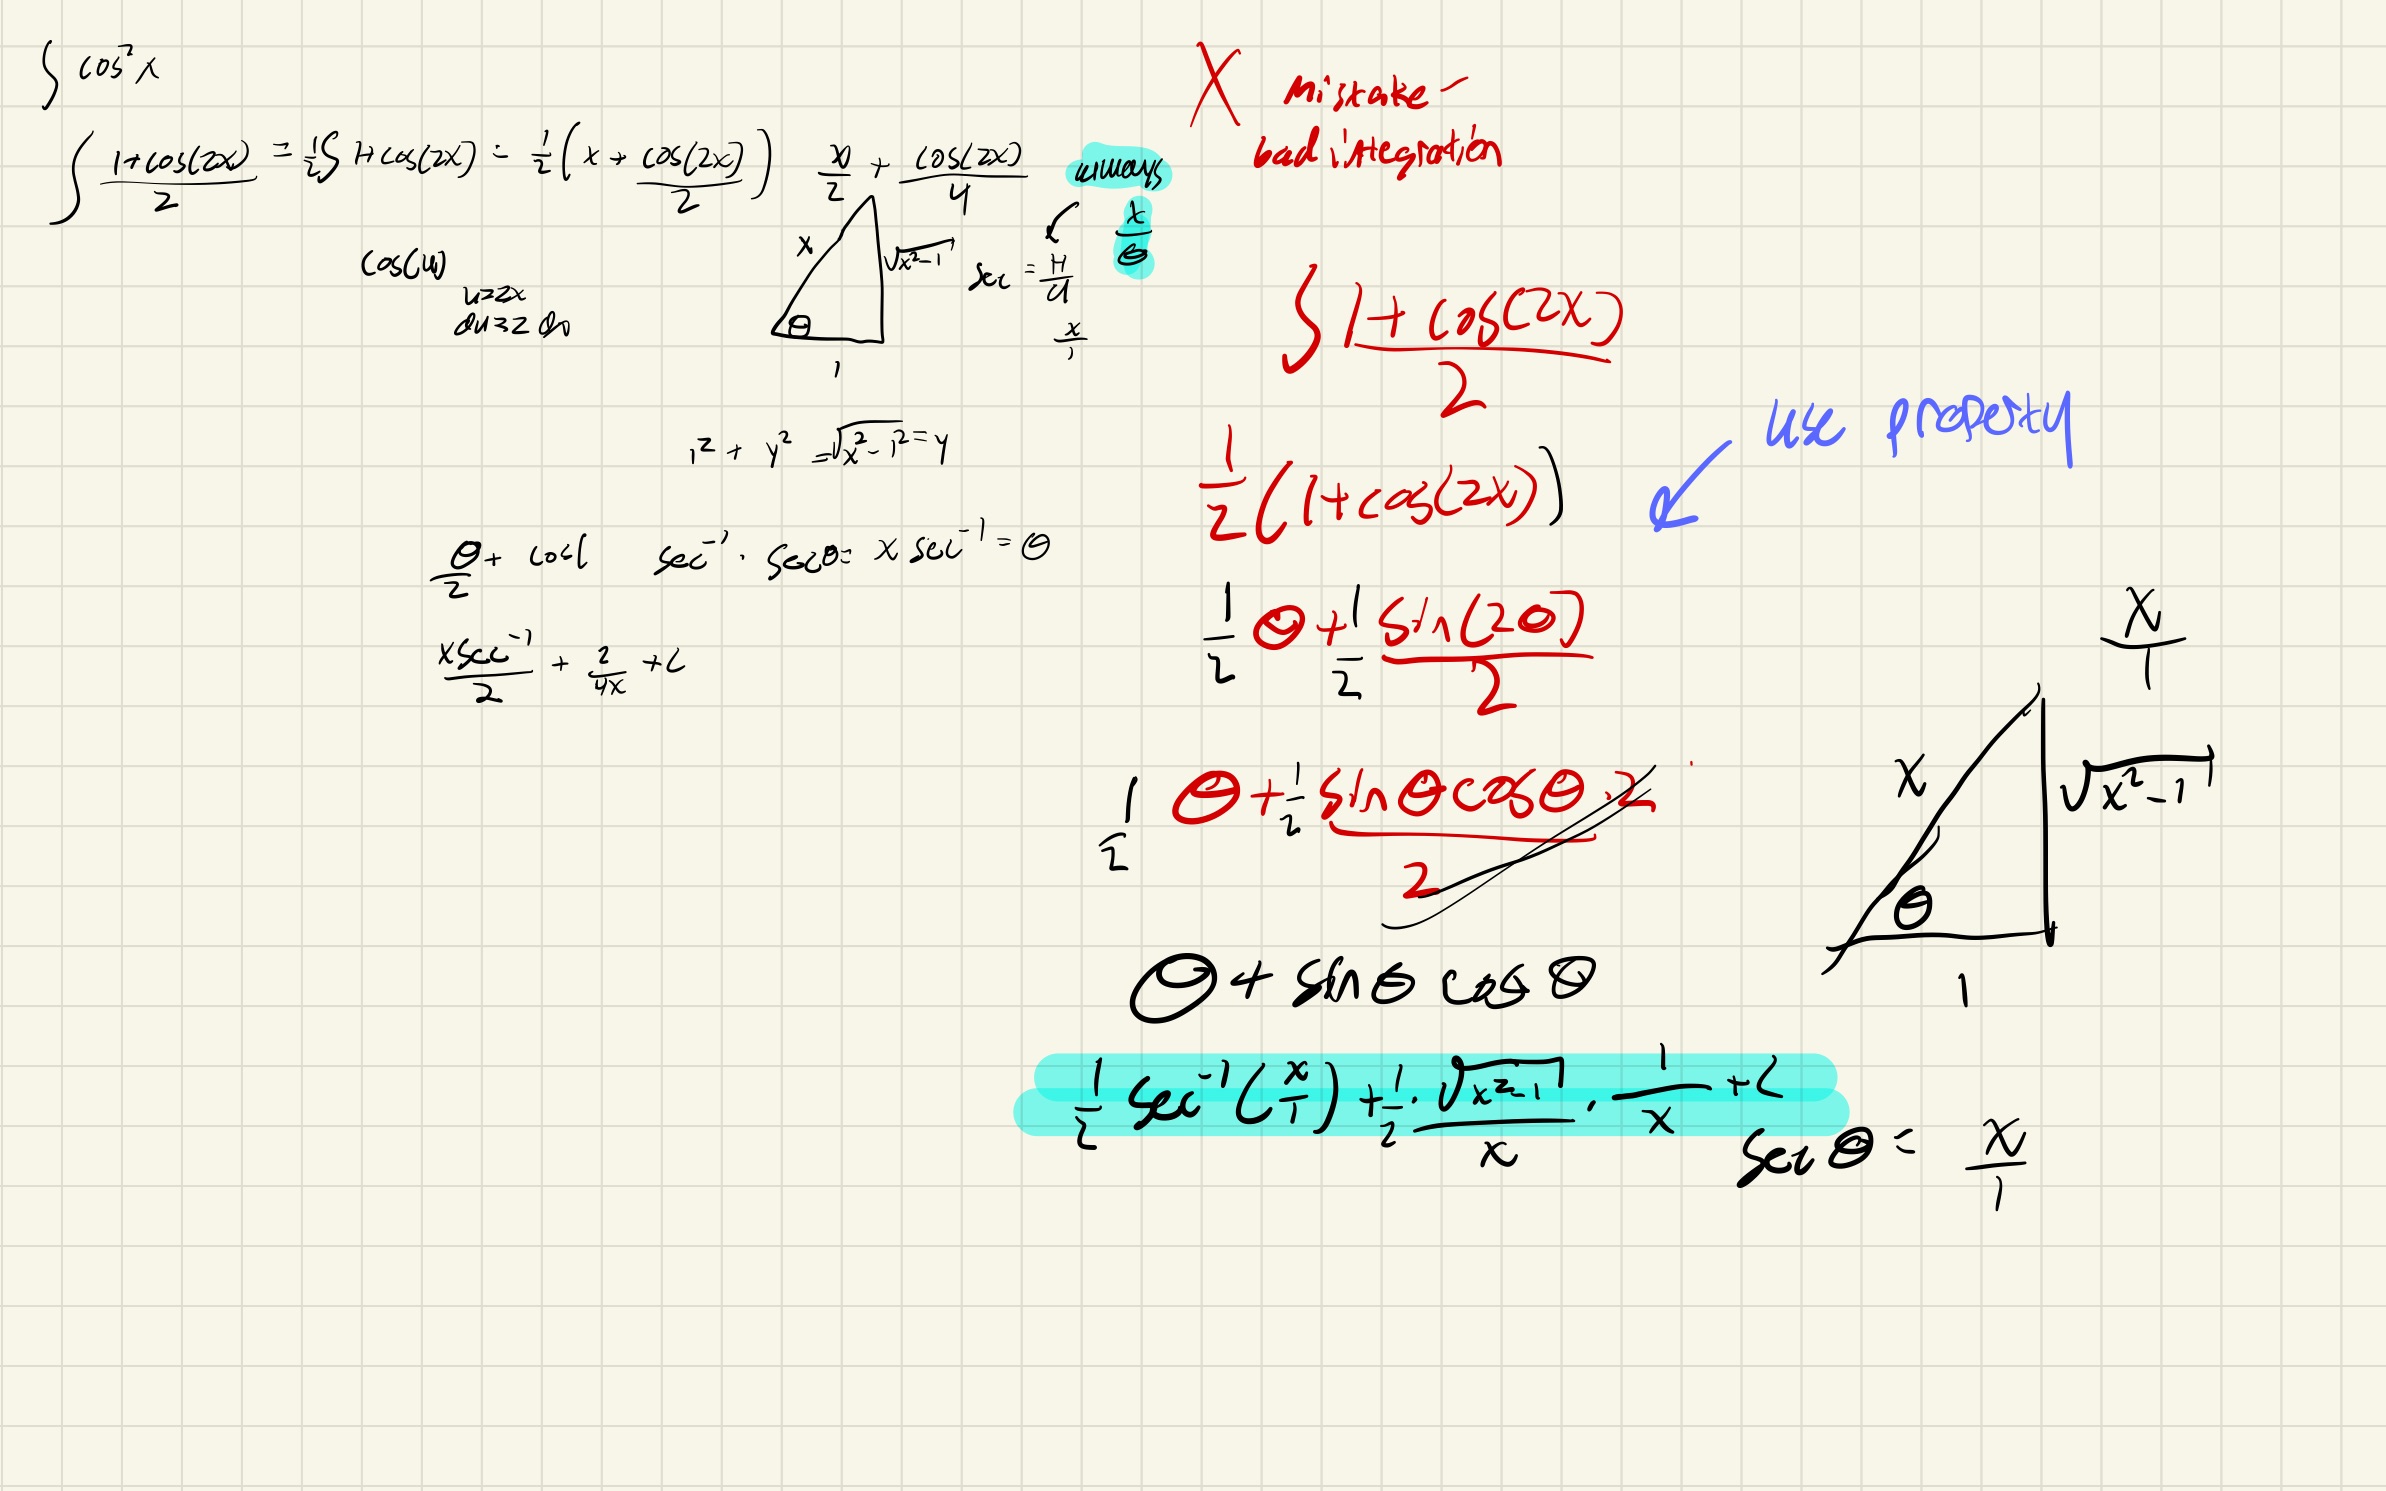 ∫ cos²x
∫ (1+cos(2x))/2 = ½∫ 1+cos(2x) = ½(x + cos(2x)/2) x/2 + cos(2x)/4
cos(u)
u=2x
du=2 dx
x
√x²-1
θ
1
sec = H/a
x/1
always
x/θ
1² + y² = √x²-1² = y
θ/2 + cos( sec⁻¹ · secθ = x sec⁻¹ = θ
xsec⁻¹/2 + 2/4x + c
X mistake –
bad integration
∫ (1+cos(2x))/2
½(1+cos(2x))
use property
½ θ + ½ sin(2θ)/2
½ θ + ½ sinθcosθ·2/2
θ + sinθ cosθ
½ sec⁻¹(x/1) + ½ · √x²-1/x · 1/x + c
x/1
x
√x²-1
θ
1
sec θ = x/1